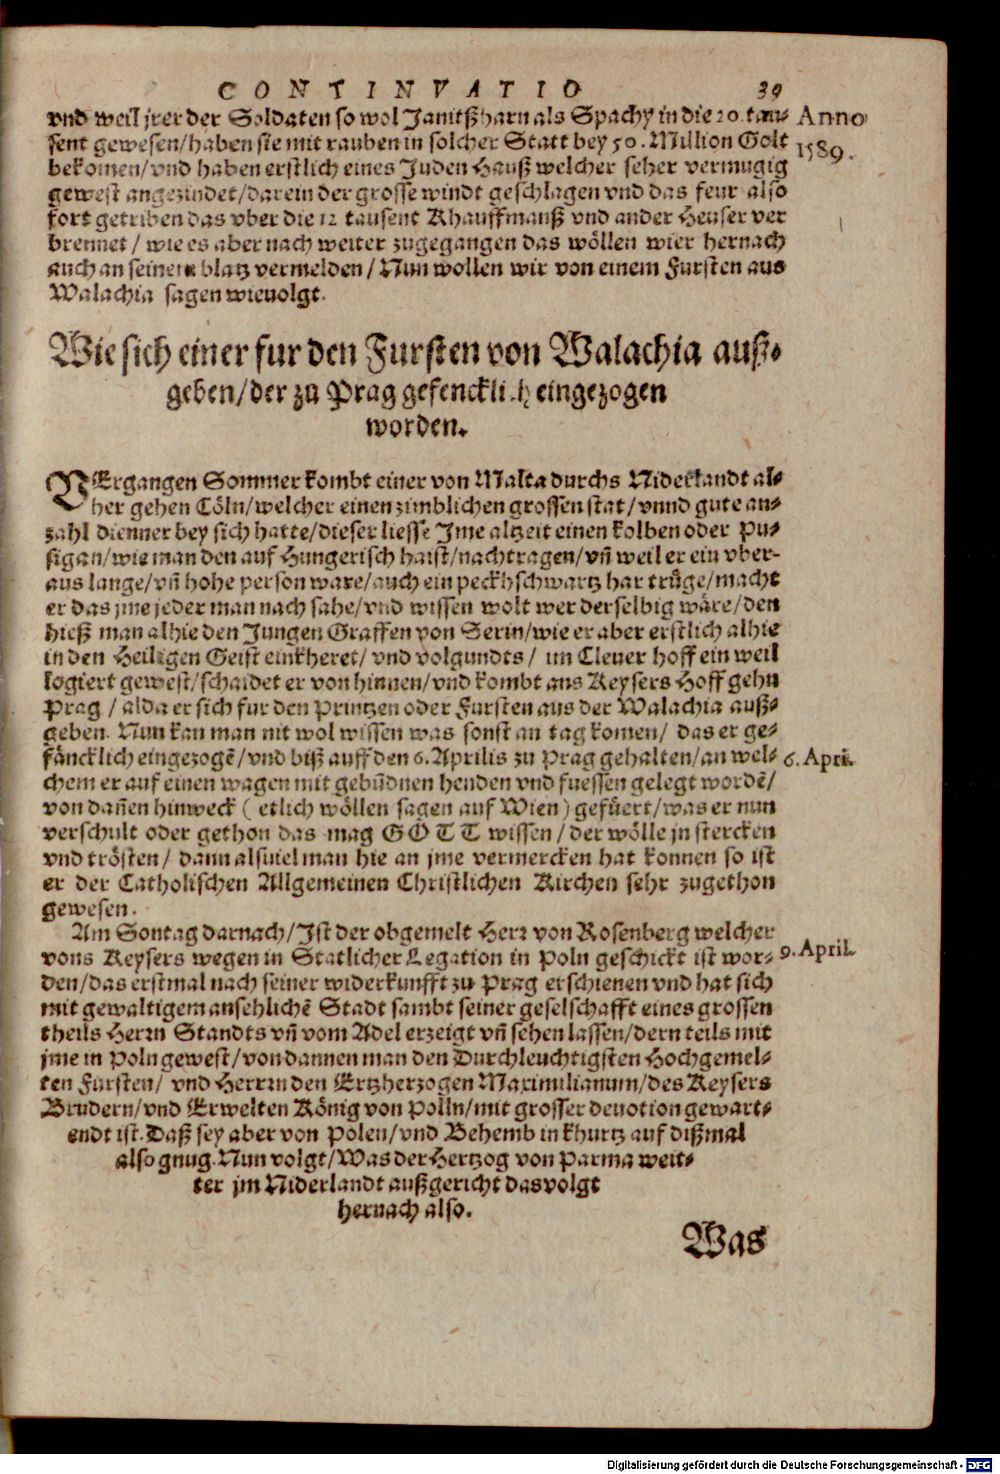 CONTINVATIO 39
vnd weil jrer der Soldaten so wol Janitßharn als Spachy in die 20. tau- Anno
sent gewesen/haben sie mit rauben in solcher Statt bey 50. Million Golt 1589.
bekomen/vnd haben erstlich eines Juden Hauß welcher seher vermugig
gewest angezindet/darein der grosse windt geschlagen vnd das feur also
fort getriben das vber die 12 tausent Khauffmanß vnd ander Heuser ver
brennet/ wie es aber nach weiter zugegangen das wöllen wier hernach
auch an seinem blatz vermelden/Nun wollen wir von einem Fursten aus
Walachia sagen wieuolgt.
Wie sich einer fur den Fursten von Walachia auß-
geben/der zu Prag gefencklich eingezogen
worden.
VErgangen Sommer kombt einer von Malta durchs Niderlandt al-
her gehen Cöln/welcher einen zimblichen grossen stat/vnnd gute an-
zahl dienner bey sich hatte/dieser liesse Jme altzeit einen kolben oder Pu-
sigan/wie man den auf Hungerisch haist/nachtragen/vñ weil er ein vber-
aus lange/vñ hohe person ware/auch ein peckhschwartz har trüge/macht
er das jme jeder man nach sahe/vnd wissen wolt wer derselbig wäre/den
hieß man alhie den Jungen Graffen von Serin/wie er aber erstlich alhie
in den Heiligen Geist einkheret/ vnd volgundts/ im Cleuer hoff ein weil
logiert gewest/schaidet er von hinnen/vnd kombt ans Keysers Hoff gehn
Prag/ alda er sich fur den Printzen oder Fursten aus der Walachia auß-
geben. Nun kan man nit wol wissen was sonst an tag komen/ das er ge-
fäncklich eingezogẽ/vnd biß auff den 6. Aprilis zu Prag gehalten/an wel- 6. April.
chem er auf einen wagen mit gebũdnen henden vnd fuessen gelegt wordẽ/
von dañen hinweck (etlich wöllen sagen auf Wien) gefüert/was er nun
verschult oder gethon das mag GOTT wissen/der wölle jn stercken
vnd trösten/ dann alsuiel man hie an jme vermercken hat konnen so ist
er der Catholischen Allgemeinen Christlichen Kirchen sehr zugethon
gewesen.
Am Sontag darnach/Jst der obgemelt Herr von Rosenberg welcher
vons Keysers wegen in Statlicher Legation in Poln geschickt ist wor- 9. April.
den/das erstmal nach seiner widerkunfft zu Prag erschienen vnd hat sich
mit gewaltigem ansehlichẽ Stadt sambt seiner geselschafft eines grossen
theils Herrn Standts vñ vom Adel erzeigt vñ sehen lassen/dern teils mit
jme in Poln gewest/von dannen man den Durchleuchtigsten Hochgemel-
ten Fursten/ vnd Herrrn den Ertzherzogen Maximilianum/des Keysers
Brudern/vnd Erwelten König von Polln/mit grosser deuotion gewart-
endt ist. Daß sey aber von Polen/vnd Behemb in khurtz auf dißmal
also gnug. Nun volgt/Was der Hertzog von Parma weit-
ter jm Niderlandt außgericht das volgt
hernach also.
Was
Digitalisierung gefördert durch die Deutsche Forschungsgemeinschaft - DFG